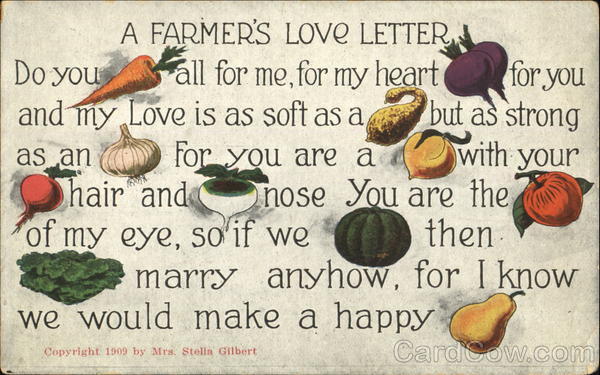 A FARMER'S LOVE LETTER
Do you all for me, for my heart for you
and my Love is as soft as a but as strong
as an For you are a with your
hair and nose You are the
of my eye, so if we then
marry anyhow, for I know
we would make a happy
Copyright 1909 by Mrs. Stella Gilbert
CardCow.com